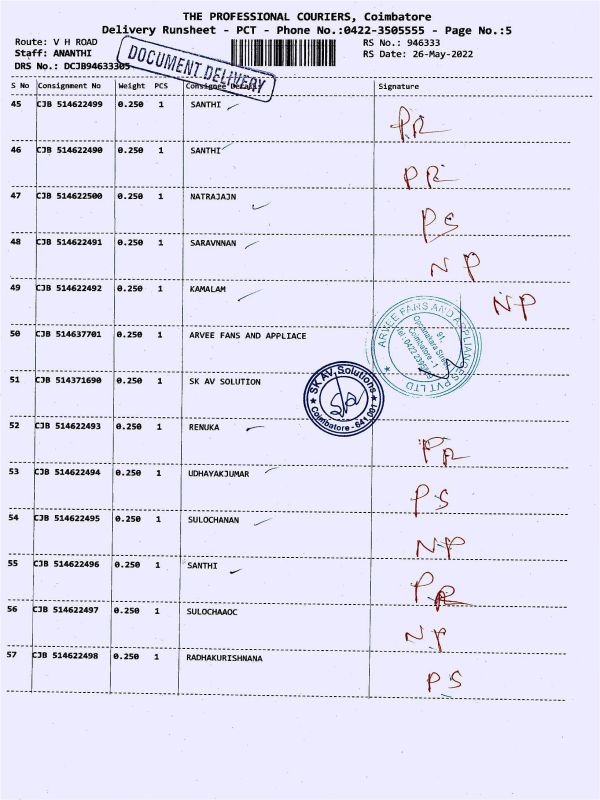 THE PROFESSIONAL COURIERS, Coimbatore
Delivery Runsheet - PCT - Phone No.:0422-3505555 - Page No.:5
Route: V H ROAD RS No.: 946333
Staff: ANANTHI RS Date: 26-May-2022
DRS No.: DCJB94633305
DOCUMENT DELIVERY
S No Consignment No Weight PCS Consignee Details Signature
45 CJB 514622499 0.250 1 SANTHI PR
46 CJB 514622490 0.250 1 SANTHI PR
47 CJB 514622500 0.250 1 NATRAJAJN PS
48 CJB 514622491 0.250 1 SARAVNNAN NP
49 CJB 514622492 0.250 1 KAMALAM NP
50 CJB 514637701 0.250 1 ARVEE FANS AND APPLIACE
ARVEE FANS AND APPLIANCES PVT LTD
91,
Oppanakara Street
Coimbatore - 1
51 CJB 514371690 0.250 1 SK AV SOLUTION
SK AV Solutions
Coimbatore - 641 001
52 CJB 514622493 0.250 1 RENUKA PR
53 CJB 514622494 0.250 1 UDHAYAKJUMAR PS
54 CJB 514622495 0.250 1 SULOCHANAN NP
55 CJB 514622496 0.250 1 SANTHI PR
56 CJB 514622497 0.250 1 SULOCHAAOC NP
57 CJB 514622498 0.250 1 RADHAKURISHNANA PS